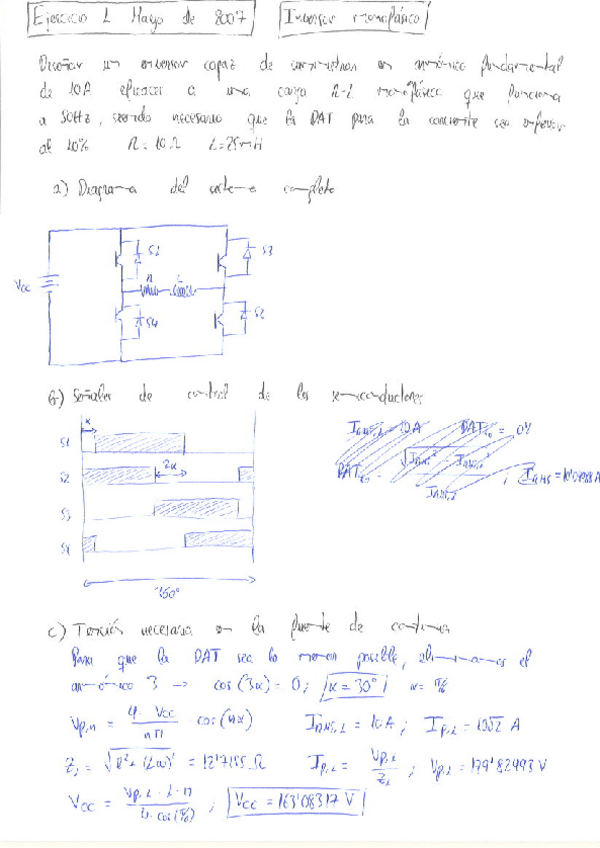 Ejercicio 1 Mayo de 2007
Inversor monofásico
Diseñar un inversor capaz de suministrar un armónico fundamental
de 10A eficaces a una carga R-L monofásica que funciona
a 50Hz, siendo necesario que la DAT para la corriente sea inferior
al 10% R=10Ω L=25mH
a) Diagrama del sistema completo
S1
S3
Vcc
R
L
S4
S2
b) Señales de control de los semiconductores
α
S1
S2
2α
S3
S4
360º
DAT
; IRMS =
c) Tensión necesaria en la fuente de continua
Para que la DAT sea lo menor posible, eliminamos el
armónico 3 → cos(3α)=0; α=30° α=π/6
Vp,n = 4·Vcc / nπ · cos(nα) IRMS,1 = 10A; Ip,1 = 10√2 A
Z1 = √R²+(Lω)² = 12'7155 Ω Ip,1 = Vp,1 / Z1 ; Vp,1 = 179'82493 V
Vcc = Vp,1·1·π / 4·cos(π/6) ; Vcc = 163'08317 V